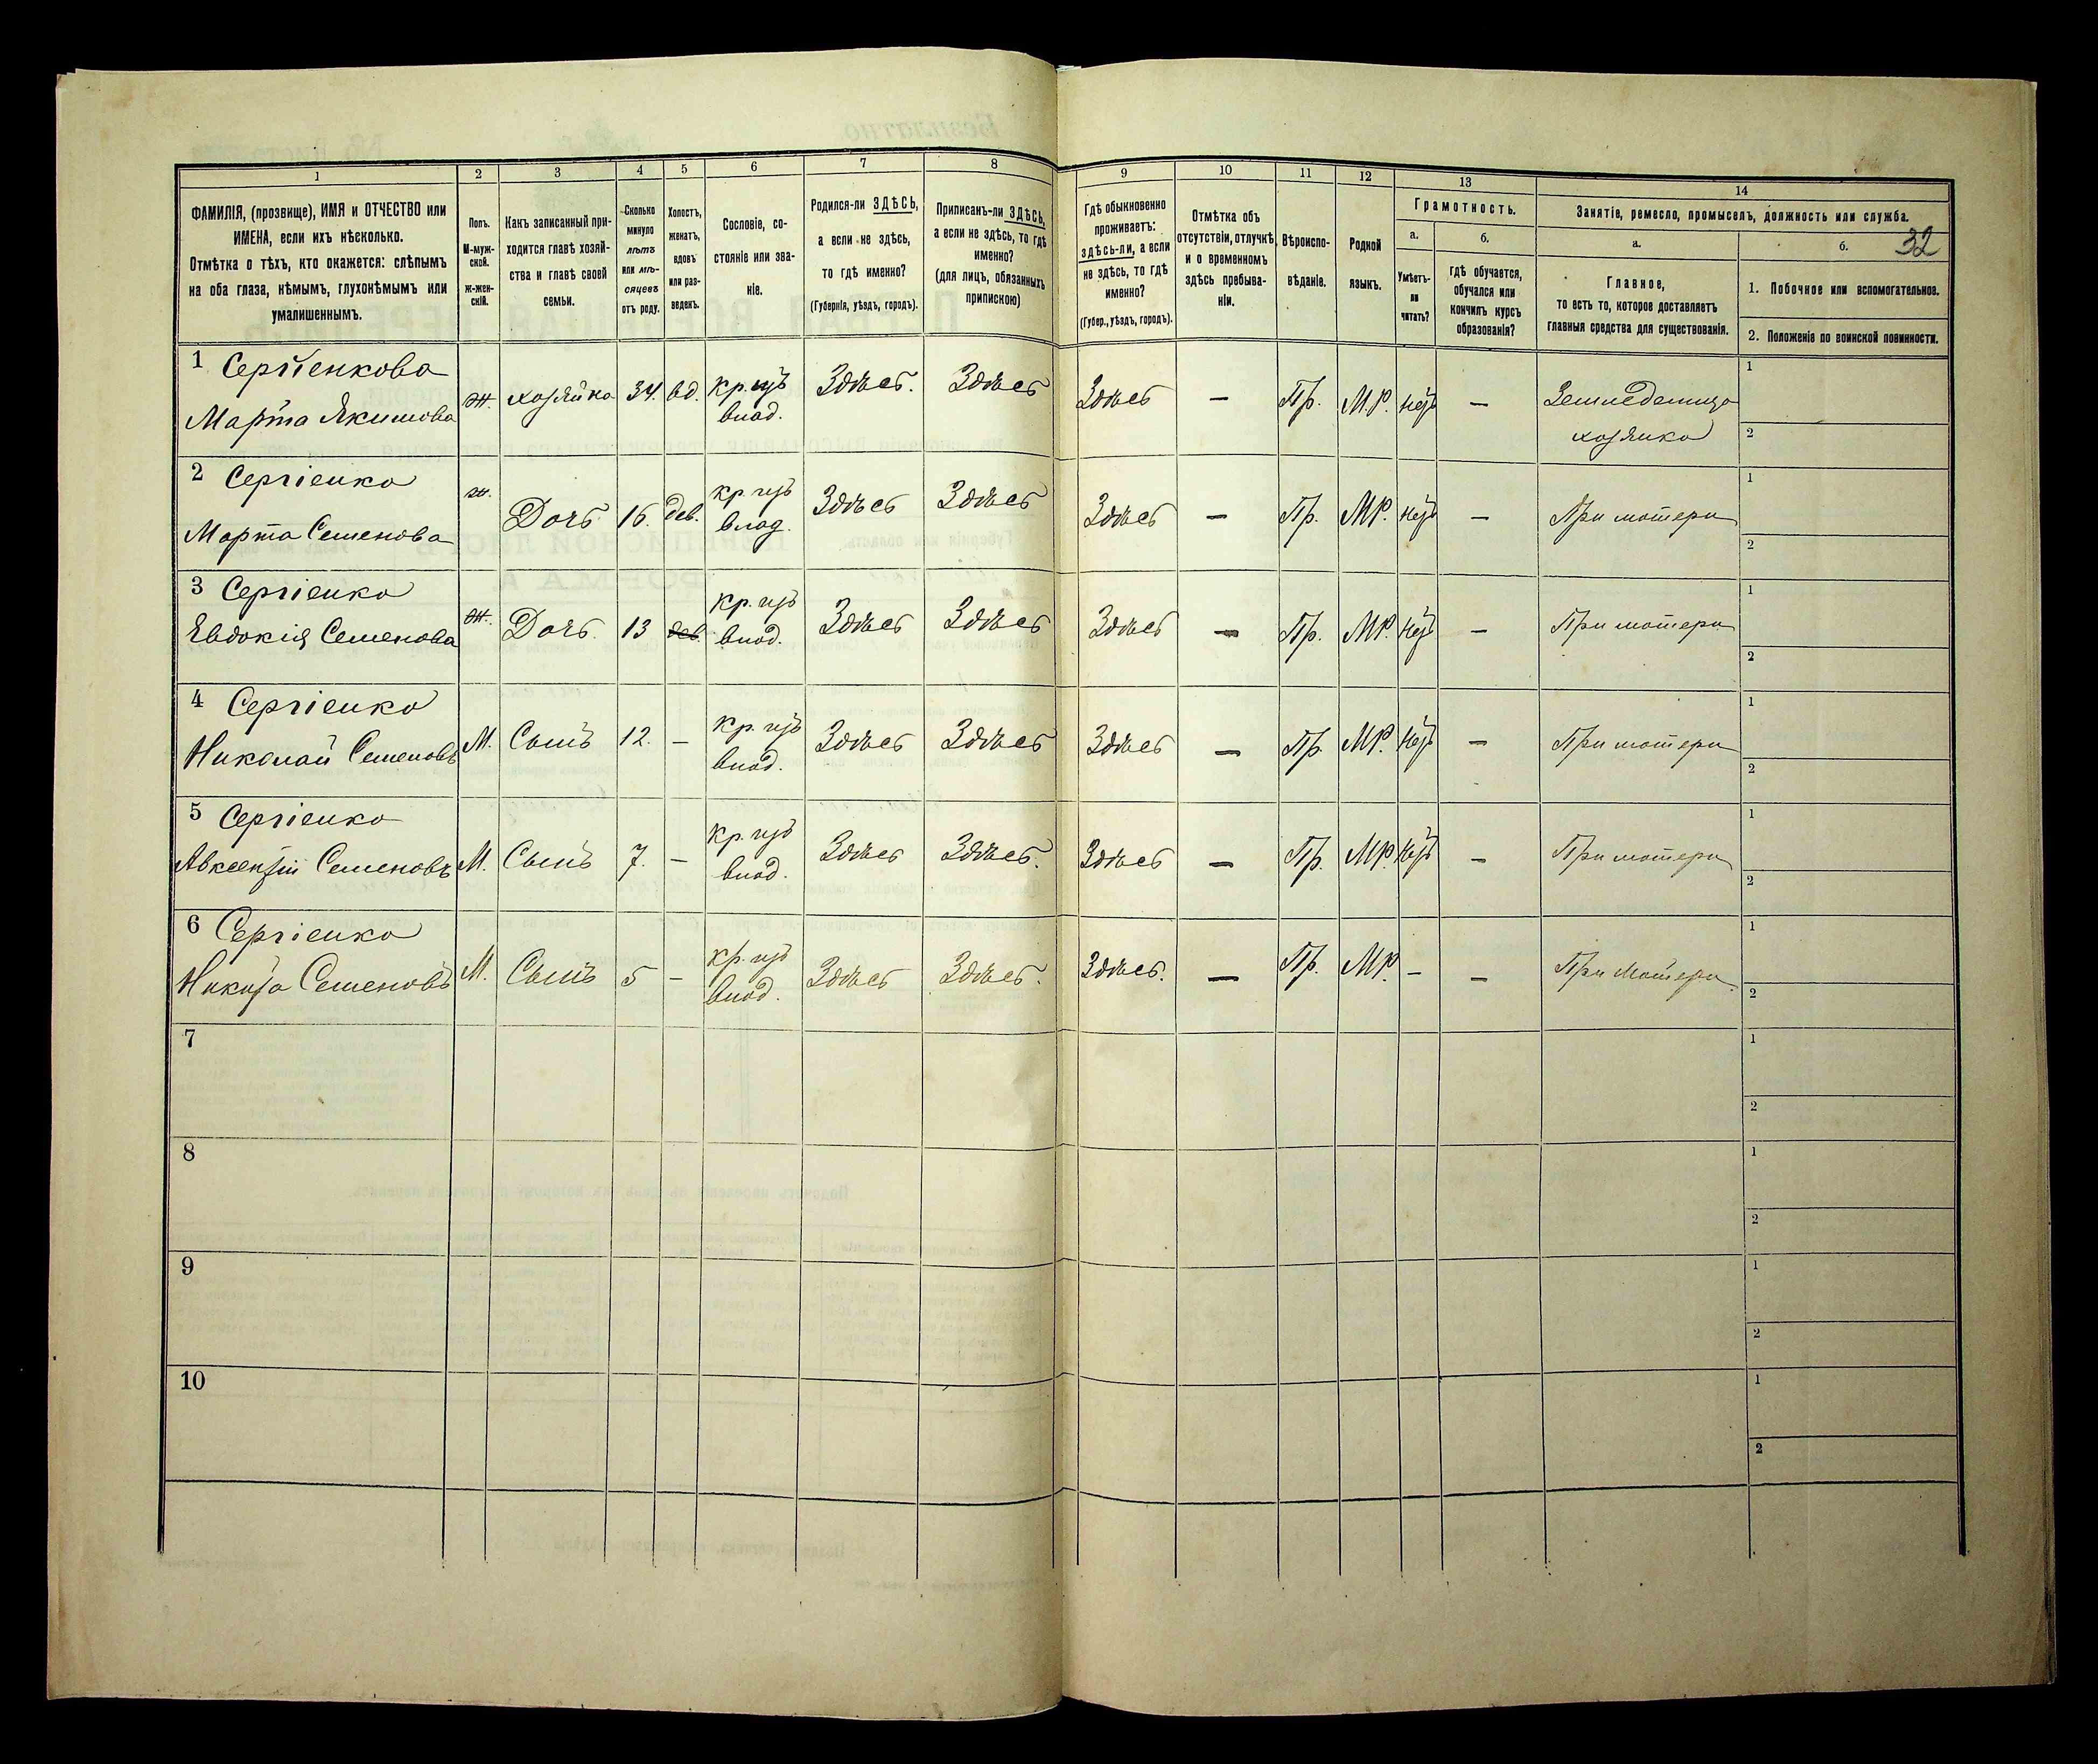 1 2 3 4 5 6 7 8 9 10 11 12 13 14
ФАМИЛІЯ, (прозвище), ИМЯ и ОТЧЕСТВО или
ИМЕНА, если ихъ нѣсколько.
Отмѣтка о тѣхъ, кто окажется: слѣпымъ
на оба глаза, нѣмымъ, глухонѣмымъ или
умалишеннымъ.
Полъ.
М-муж-
ской.
ж-жен-
скій.
Какъ записанный при-
ходится главѣ хозяй-
ства и главѣ своей
семьи.
Сколько
минуло
лѣтъ
или мѣ-
сяцевъ
отъ роду.
Холостъ,
женатъ,
вдовъ
или раз-
веденъ.
Сословіе, со-
стояніе или зва-
ніе.
Родился-ли ЗДѢСЬ,
а если не здѣсь,
то гдѣ именно?
(Губернія, уѣздъ, городъ).
Приписанъ-ли ЗДѢСЬ,
а если не здѣсь, то гдѣ
именно?
(для лицъ, обязанныхъ
припискою)
Гдѣ обыкновенно
проживаетъ:
здѣсь-ли, а если
не здѣсь, то гдѣ
именно?
(Губер., уѣздъ, городъ).
Отмѣтка объ
отсутствіи, отлучкѣ
и о временномъ
здѣсь пребыва-
ніи.
Вѣроиспо-
вѣданіе.
Родной
языкъ.
Грамотность.
а.
Умѣетъ-
ли
читать?
б.
гдѣ обучается,
обучался или
кончилъ курсъ
образованія?
Занятіе, ремесло, промыселъ, должность или служба.
а.
Главное,
то есть то, которое доставляетъ
главныя средства для существованія.
б.
32
1. Побочное или вспомогательное.
2. Положеніе по воинской повинности.
1 Сергіенкова
Марта Якимова ж. хозяйка 34. вд. кр. изъ влад. Здѣсь. Здѣсь Здѣсь — Пр. М.Р. нѣтъ — Земледелица хозяйка 1 2
2 Сергіенко
Марта Семенова ж. Дочь 16. дев. кр. изъ влад. Здѣсь Здѣсь Здѣсь — Пр. МР. нѣтъ — При матери 1 2
3 Сергіенко
Явдокія Семенова ж. Дочь. 13 дев. кр. изъ влад. Здѣсь Здѣсь Здѣсь — Пр. МР. нѣтъ — При матери 1 2
4 Сергіенко
Николай Семеновъ М. Сынъ 12. — кр. изъ влад. Здѣсь Здѣсь Здѣсь — Пр. МР. нѣтъ — При матери 1 2
5 Сергіенко
Авксентій Семеновъ М. Сынъ 7. — кр. изъ влад. Здѣсь Здѣсь. Здѣсь — Пр. МР. нѣтъ — При матери 1 2
6 Сергіенко
Никита Семеновъ М. Сынъ 5 — кр. изъ влад. Здѣсь Здѣсь. Здѣсь. — Пр. МР. — — При матери 1 2
7 1 2
8 1 2
9 1 2
10 1 2